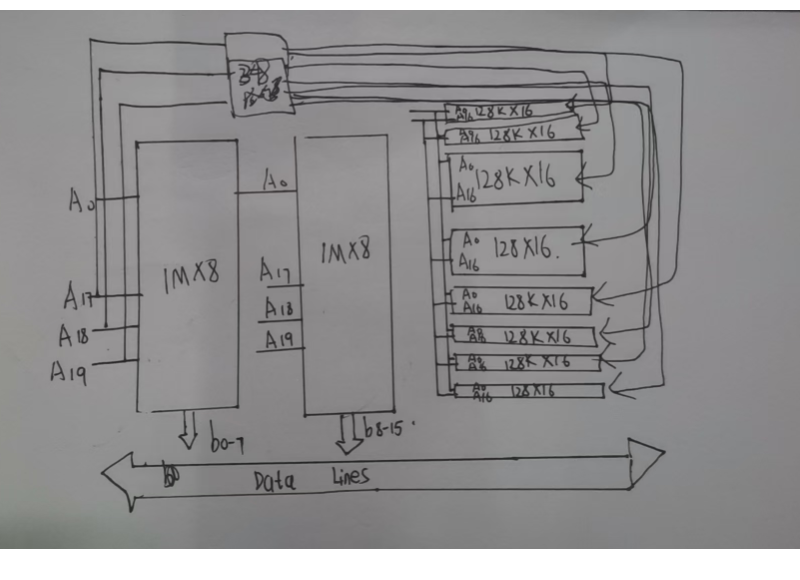 38
A0
A17
A18
A19
1MX8
A0
A17
A18
A19
1MX8
A0 A16 128KX16
A0 A16 128KX16
A0 A16 128KX16
A0 A16 128X16.
A0 A16 128KX16
A0 A16 128KX16
A0 A16 128KX16
A0 A16 128X16
b0-7
b8-15.
Data Lines